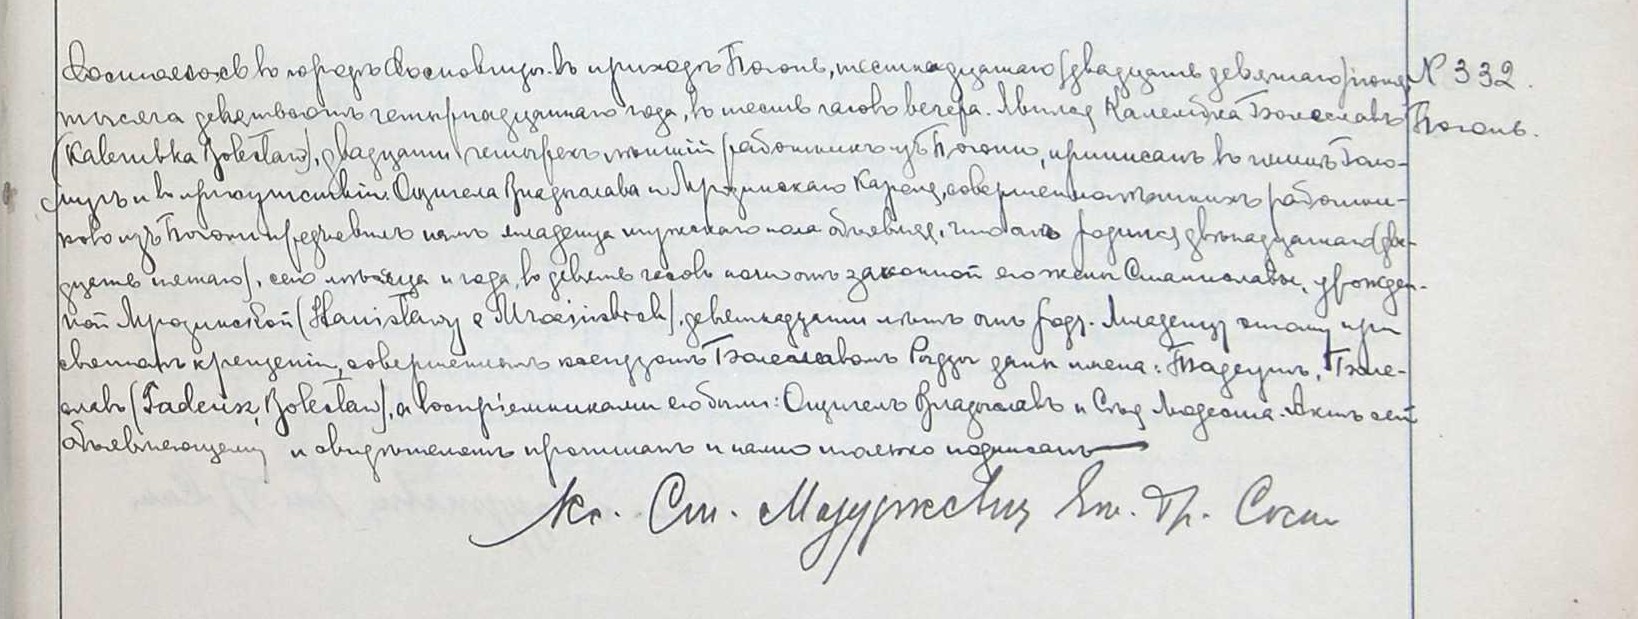 Состоялось въ городѣ Сосновицы въ приходѣ Погонь, шестнадцатаго (двадцать девятаго) № 332.
тысяча девятьсотъ четырнадцатаго года, въ шесть часовъ вечера. Явился Калембка Болеславъ Погонь.
(Kalembka Bolesław), двадцати четырехъ лѣтній работникъ изъ Погони, приписанъ въ гминѣ
и въ присутствіи Ощигела Владыслава и Мрозинскаго Кароля, совершеннолѣтнихъ работни-
ковъ изъ Погони предъявилъ намъ младенца мужескаго пола объявляя, что онъ родился двѣнадцатаго (два-
дцать пятаго), сего мѣсяца и года, въ девять часовъ ночи отъ законной его жены Станиславы, урожден-
ной Мрозинской (Stanisławy z Mrozińskich), девятнадцати лѣтъ отъ роду. Младенцу этому при
святомъ крещеніи, совершенномъ ксендзомъ Болеславомъ даны имена: Тадеушъ, Боле-
славъ (Tadeusz, Bolesław), а воспріемниками его были: Ощигелъ Владыславъ и Модеста. Актъ сей
объявляющему и свидѣтелямъ прочитанъ и нами только подписанъ
Кс. Ст. Мазуркевичъ Гр. Сосн.